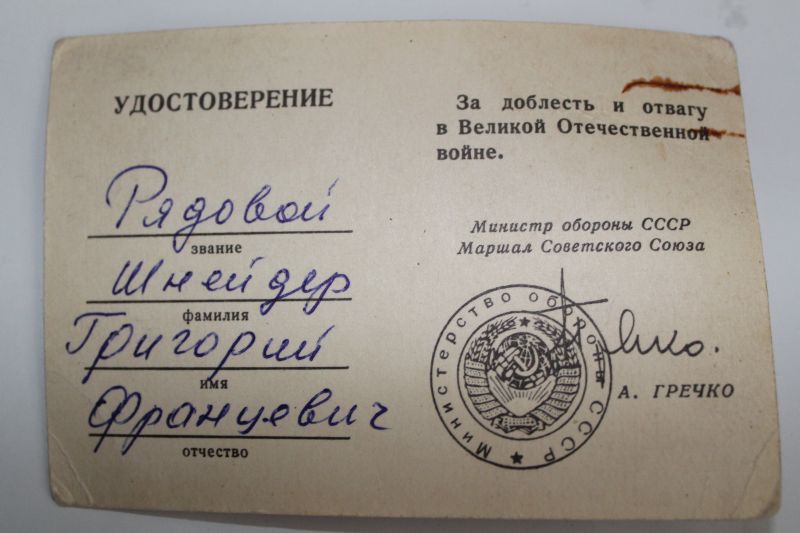 УДОСТОВЕРЕНИЕ
Рядовой
звание
Шнейдер
фамилия
Григорий
имя
Францевич
отчество
За доблесть и отвагу
в Великой Отечественной
войне.
Министр обороны СССР
Маршал Советского Союза
Министерство обороны СССР
А. ГРЕЧКО